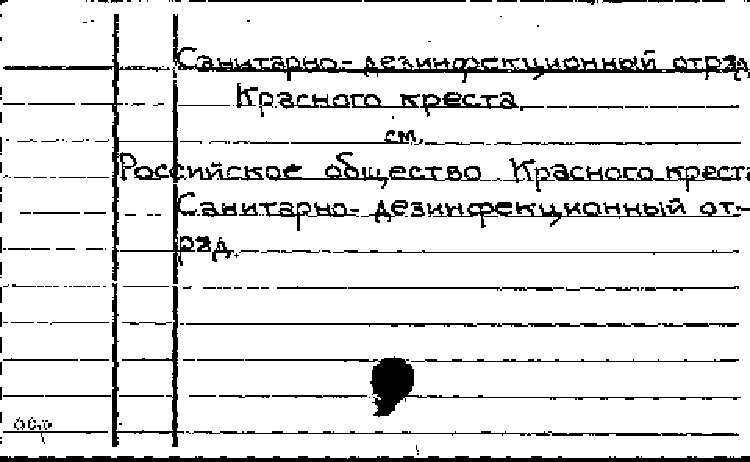 Санитарно-дезинфекционный отряд
Красного креста.
см.
Российское общество Красного креста
Санитарно-дезинфекционный от-
ряд.